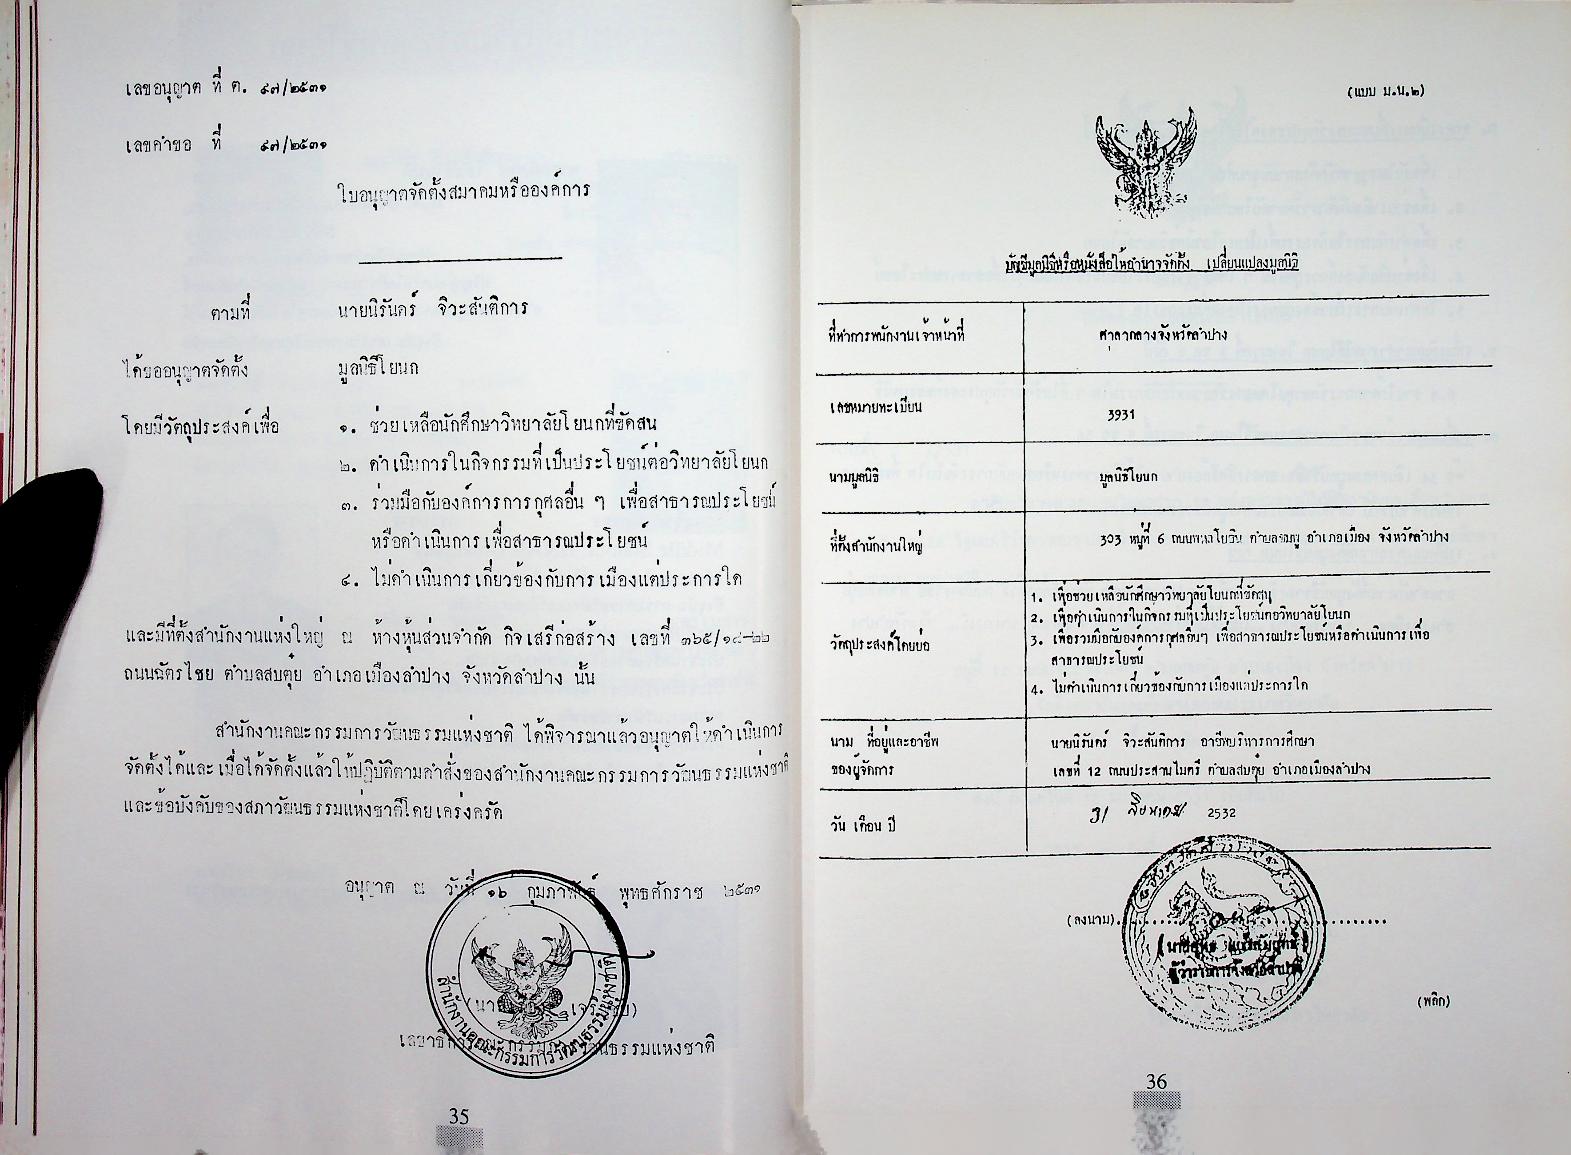 เลขอนุญาต ที่ ต. ๔๗/๒๕๓๑
เลขคำขอ ที่ ๔๗/๒๕๓๑
ใบอนุญาตจัดตั้งสมาคมหรือองค์การ
ตามที่ นายนิรันดร์ จิวะสันติการ
ได้ขออนุญาตจัดตั้ง มูลนิธิโยนก
โดยมีวัตถุประสงค์เพื่อ ๑. ช่วยเหลือนักศึกษาวิทยาลัยโยนกที่ขัดสน
๒. ดำเนินการในกิจกรรมที่เป็นประโยชน์ต่อวิทยาลัยโยนก
๓. ร่วมมือกับองค์การการกุศลอื่น ๆ เพื่อสาธารณประโยชน์
หรือดำเนินการเพื่อสาธารณประโยชน์
๔. ไม่ดำเนินการเกี่ยวข้องกับการเมืองแต่ประการใด
และมีที่ตั้งสำนักงานแห่งใหญ่ ณ ห้างหุ้นส่วนจำกัด กิจเสรีก่อสร้าง เลขที่ ๓๖๕/๑๘-๒๒
ถนนฉัตรไชย ตำบลสบตุ๋ย อำเภอเมืองลำปาง จังหวัดลำปาง นั้น
สำนักงานคณะกรรมการวัฒนธรรมแห่งชาติ ได้พิจารณาแล้วอนุญาตให้ดำเนินการ
จัดตั้งได้และเมื่อได้จัดตั้งแล้วให้ปฏิบัติตามคำสั่งของสำนักงานคณะกรรมการวัฒนธรรมแห่งชาติ
และข้อบังคับของสภาวัฒนธรรมแห่งชาติโดยเคร่งครัด
อนุญาต ณ วันที่ ๑๖ กุมภาพันธ์ พุทธศักราช ๒๕๓๑
(นาย
เลขาธิการคณะกรรมการวัฒนธรรมแห่งชาติ
สำนักงานคณะกรรมการวัฒนธรรมแห่งชาติ
35
(แบบ ม.น.๒)
บัญชีมูลนิธิหรือหนังสือให้อำนาจจัดตั้ง เปลี่ยนแปลงมูลนิธิ
ที่ทำการพนักงานเจ้าหน้าที่ ศาลากลางจังหวัดลำปาง
เลขหมายทะเบียน 3931
นามมูลนิธิ มูลนิธิโยนก
ที่ตั้งสำนักงานใหญ่ 303 หมู่ที่ 6 ถนนพหลโยธิน ตำบลชมพู อำเภอเมือง จังหวัดลำปาง
วัตถุประสงค์โดยย่อ 1. เพื่อช่วยเหลือนักศึกษาวิทยาลัยโยนกที่ขัดสน
2. เพื่อดำเนินการในกิจกรรมที่เป็นประโยชน์ต่อวิทยาลัยโยนก
3. เพื่อร่วมมือกับองค์การกุศลอื่นๆ เพื่อสาธารณประโยชน์หรือดำเนินการเพื่อ
สาธารณประโยชน์
4. ไม่ดำเนินการเกี่ยวข้องกับการเมืองแต่ประการใด
นาม ที่อยู่และอาชีพ นายนิรันดร์ จิวะสันติการ อาชีพบริหารการศึกษา
ของผู้จัดการ เลขที่ 12 ถนนประสานไมตรี ตำบลสบตุ๋ย อำเภอเมืองลำปาง
วัน เดือน ปี 31 สิงหาคม 2532
(ลงนาม)
ผู้ว่าราชการจังหวัดลำปาง
(พลิก)
36